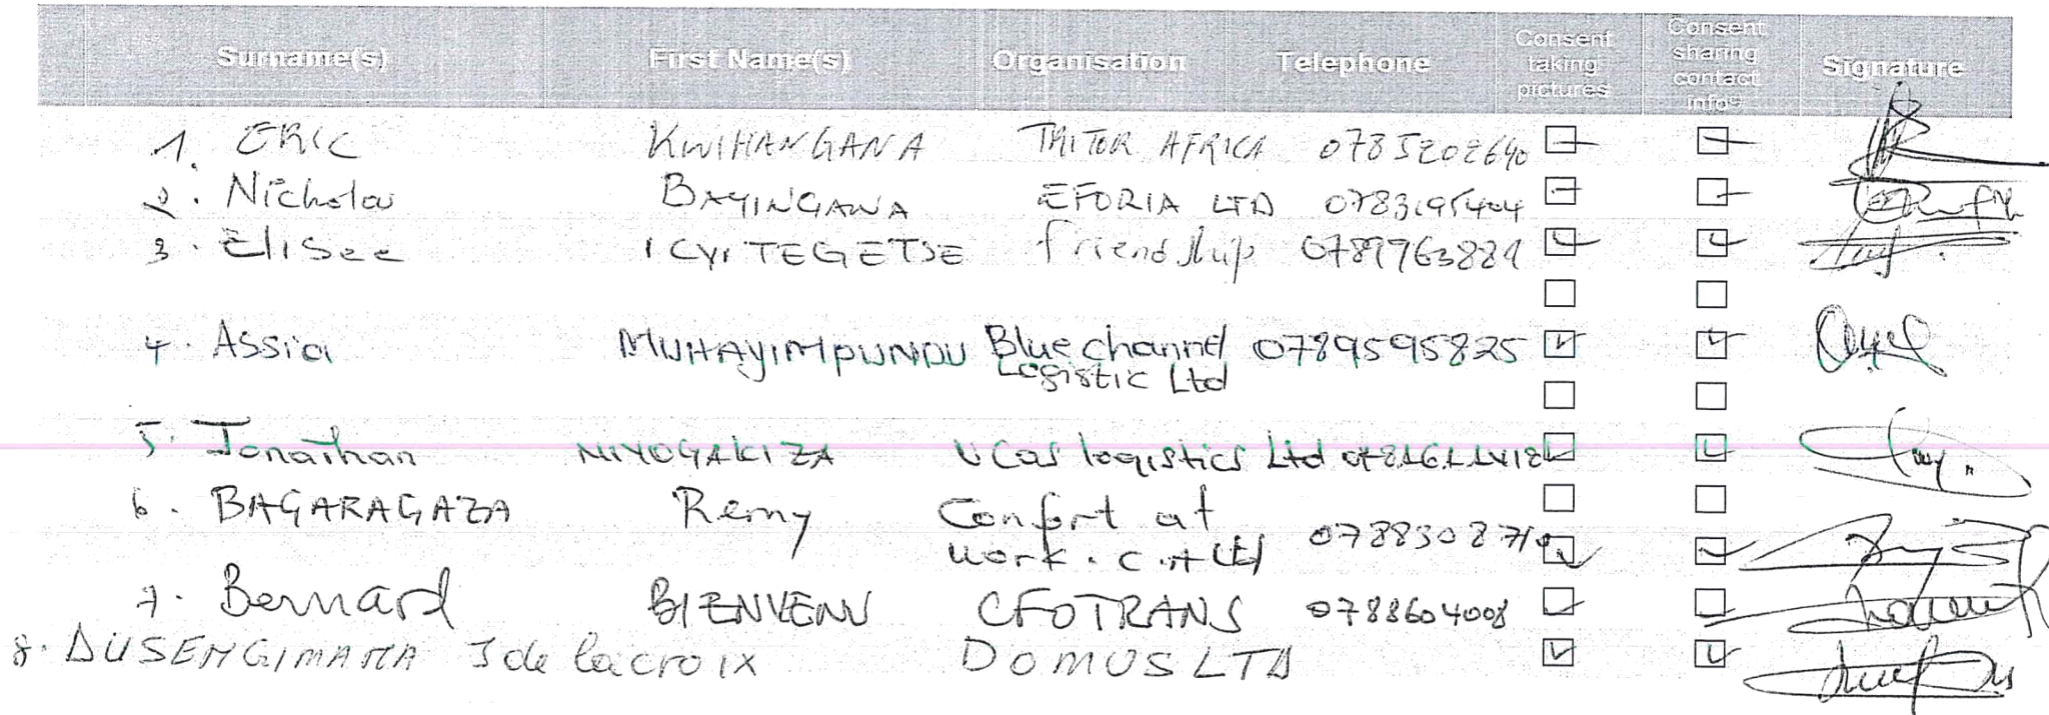 Surname(s) First Name(s) Organisation Telephone Consent taking pictures Consent sharing contact infos Signature
1. ERIC KWIHANGANA TRITOR AFRICA 0785202640
2. Nicholas BAYINGANA EFORIA LTD 0783195404
3. Elisee ICYITEGETSE friendship
4. Assia MUHAYIMPUNDU Blue channel 0789595825
Logistic Ltd
5. Jonathan NIYOGAKIZA logistics Ltd
6. BAGARAGAZA Remy Confort at
work.
7. Bernard BIENVENU CFOTRANS 0788604008
8. DUSENGIMANA J de la croix DOMUS LTD